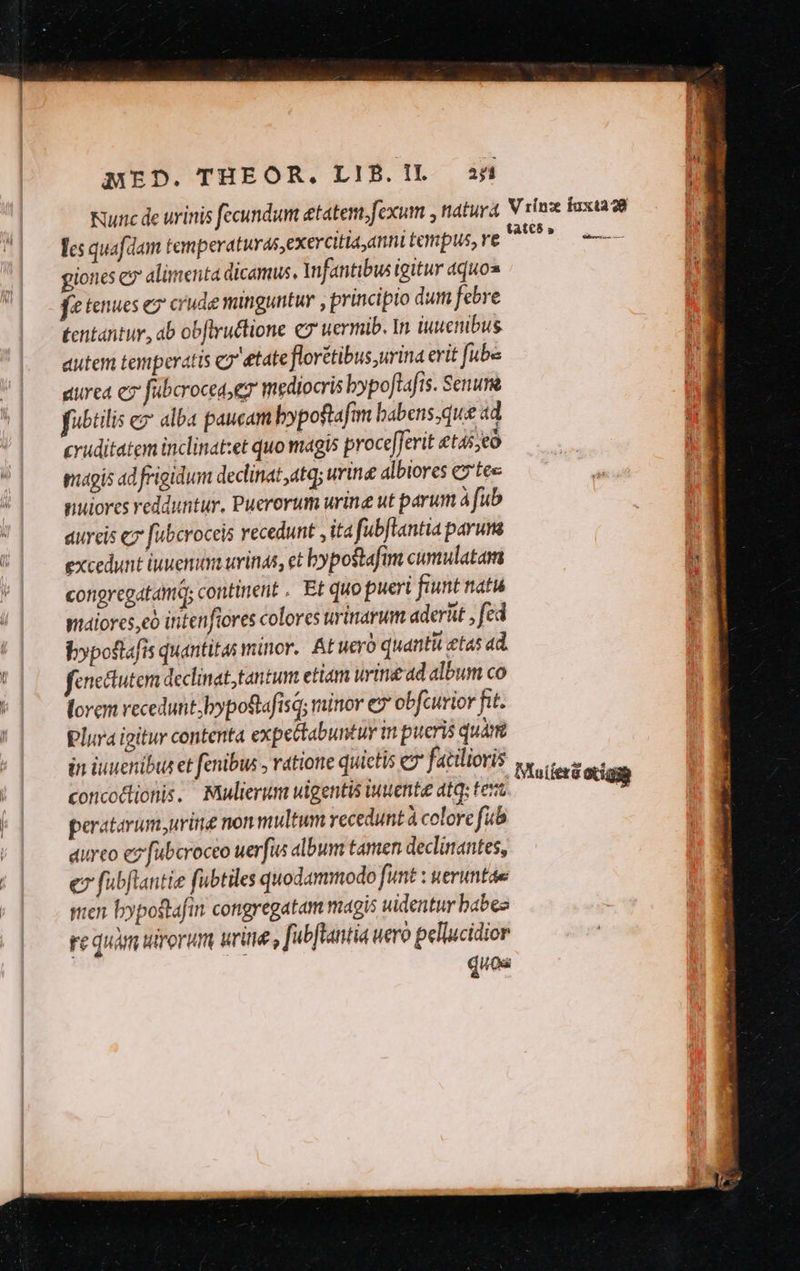 MED. THEOR. LIB. II. 251
Nunc de urinis ſecundum ætatem, ſexum, natura
les quaſdam temperaturas, exercitia, anni tempus, re
giones & alimenta dicamus. Infantibus igitur aquo-
ſæ tenues & crudæ minguntur, principio dum febre
tentantur, ab obſtructione & uermib. In iuuenibus
autem temperatis & ætate florētibus, urina erit ſub-
aurea & ſubcrocea, & mediocris hypoſtaſis. Senum
ſubtilis & alba paucam hypoſtaſim habens, quæ ad
cruditatem inclinat: et quo magis proceſſerit ætas, eò
magis ad frigidum declinat, atq; urinæ albiores & te-
nuiores redduntur. Puerorum urinæ ut parum à ſub
aureis & ſubcroceis recedunt, ita ſubſtantia parum
excedunt iuuenum urinas, et hypoſtaſim cumulatam
congregatamq́; continent. Et quo pueri fiunt natu
maiores, eò intenſiores colores urinarum aderūt, ſed
hypoſtaſis quantitas minor. At uerò quantū ætas ad
ſenectutem declinat, tantum etiam urinæ ad album co
lorem recedunt, hypoſtaſisq́; minor & obſcurior fit.
Plura igitur contenta expectabuntur in pueris quàm
in iuuenibus et ſenibus, ratione quietis & facilioris
concoctionis. Mulierum uigentis iuuentæ atq; tem
peratarum, urinæ non multum recedunt à colore ſub
aureo & ſubcroceo uerſus album tamen declinantes,
& ſubſtantiæ ſubtiles quodammodo ſunt: uerunta-
men hypoſtaſin congregatam magis uidentur habe-
re quàm uirorum urinæ, ſubſtantia uerò pellucidior
quo-
Vrinæ iuxta æ
tates,
Mulierū